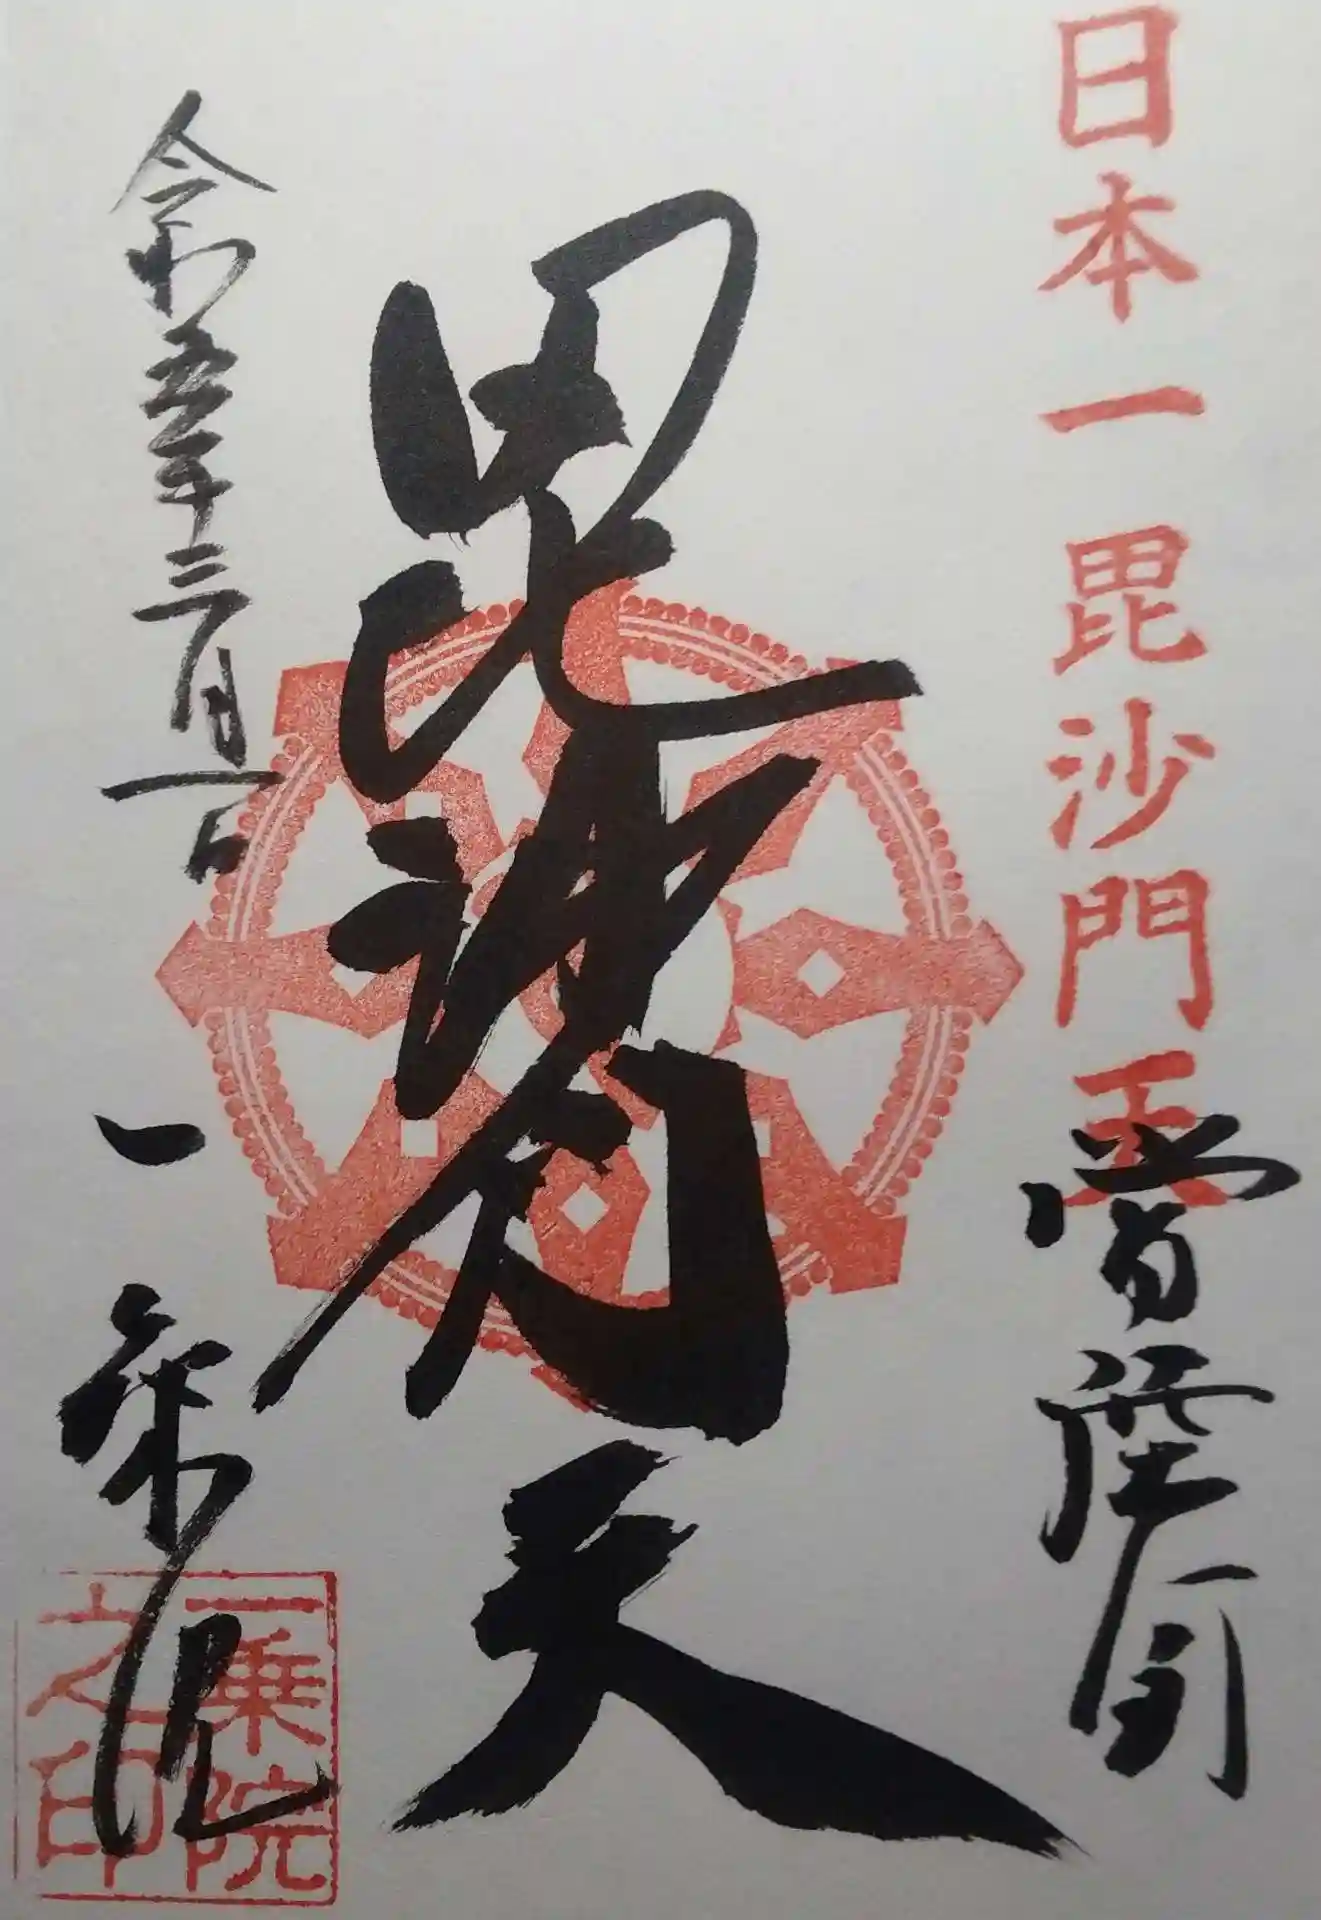 日本一毘沙門天
常陸国
毘沙門天
令和五年三月一日
一乗院
一乗院
之印